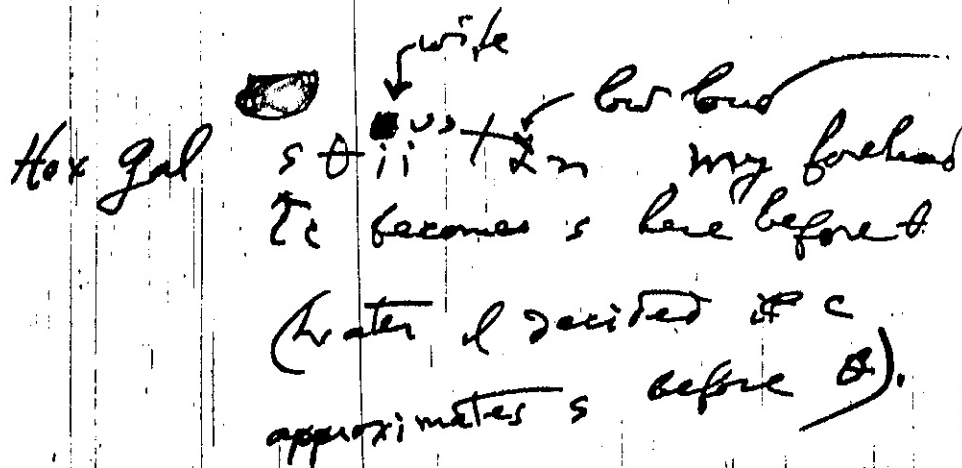 wife
low tone
Hox Gal sθii my forehead
c becomes s here before θ
(Later I decided it c
approximates s before θ).